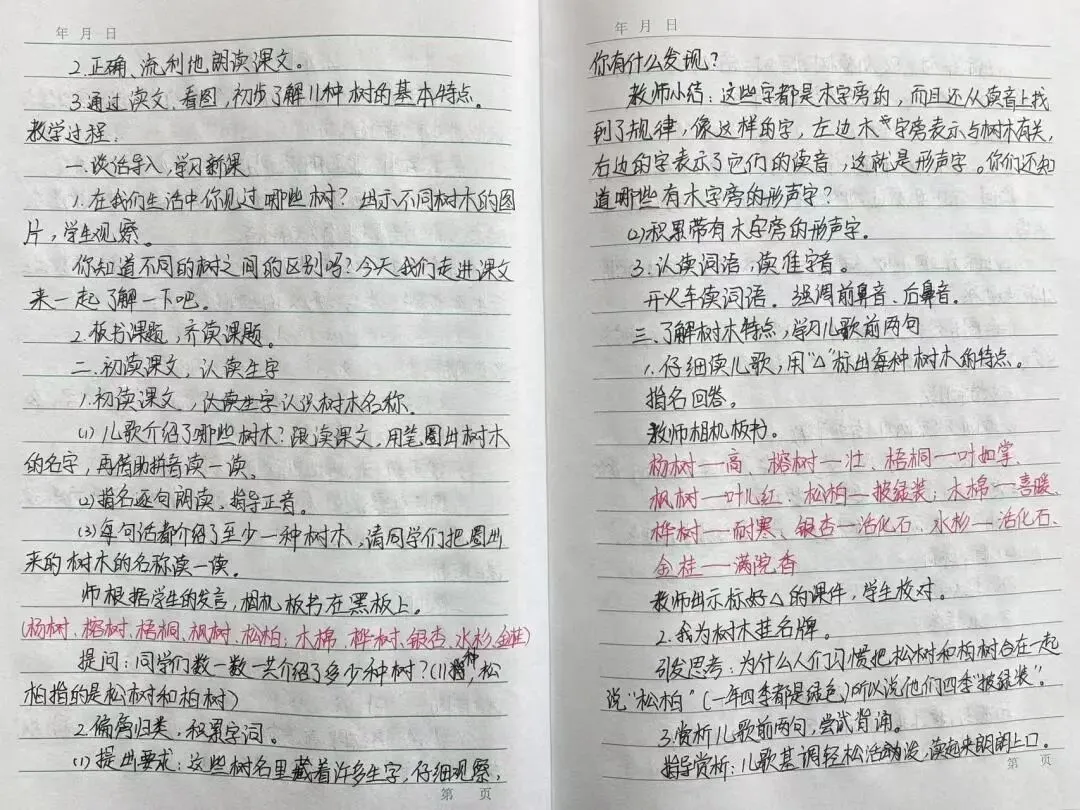 年 月 日
2.正确、流利地朗读课文。
3.通过读文、看图,初步了解几种树的基本特点。
教学过程:
一.谈话导入,学习新课
1.在我们生活中你见过哪些树?出示不同树木的图
片,学生观察。
你知道不同的树之间的区别吗?今天我们走进课文
来一起了解一下吧。
2.板书课题,齐读课题。
二.初读课文,认读生字
1.初读课文,认读生字认识树木名称.
(1)儿歌介绍了哪些树木?跟读课文,用笔圈出树木
的名字,再借助拼音读一读。
(2)指名逐句朗读,指导正音。
(3)每句话都介绍了至少一种树木,请同学们把圈出
来的树木的名称读一读。
师根据学生的发言,相机板书在黑板上。
(杨树、榕树、梧桐、枫树、松柏;木棉、桦树、银杏、水杉、金桂)
提问:同学们数一数一共介绍了多少种树?(11种,松
柏指的是松树和柏树)
2.偏旁归类,积累字词。
(1)提出要求:这些树名里藏着许多生字,仔细观察,
第 页
年 月 日
你有什么发现?
教师小结:这些字都是木字旁的,而且还从读音上找
到了规律,像这样的字,左边木字旁表示与树木有关,
右边的字表示了它们的读音,这就是形声字。你们还知
道哪些有木字旁的形声字?
(2)积累带有木字旁的形声字.
3.认读词语,读准字音。
开火车读词语.强调前鼻音、后鼻音.
三.了解树木特点,学习儿歌前两句
1.仔细读儿歌,用“△”标出每种树木的特点。
指名回答。
教师相机板书。
杨树—高、榕树—壮、梧桐—叶如掌、
枫树—叶儿红、松柏—披绿装;木棉—喜暖、
桦树—耐寒、银杏—活化石、水杉—活化石、
金桂—满院香
教师出示标好△的课件,学生校对。
2.我为树木挂名牌。
引发思考:为什么人们习惯把松树和柏树合在一起
说“松柏”(一年四季都是绿色,)所以说他们四季“披绿装”。
3.赏析儿歌前两句,尝试背诵。
指导赏析:儿歌基调轻松活泼,读起来朗朗上口.
第 页